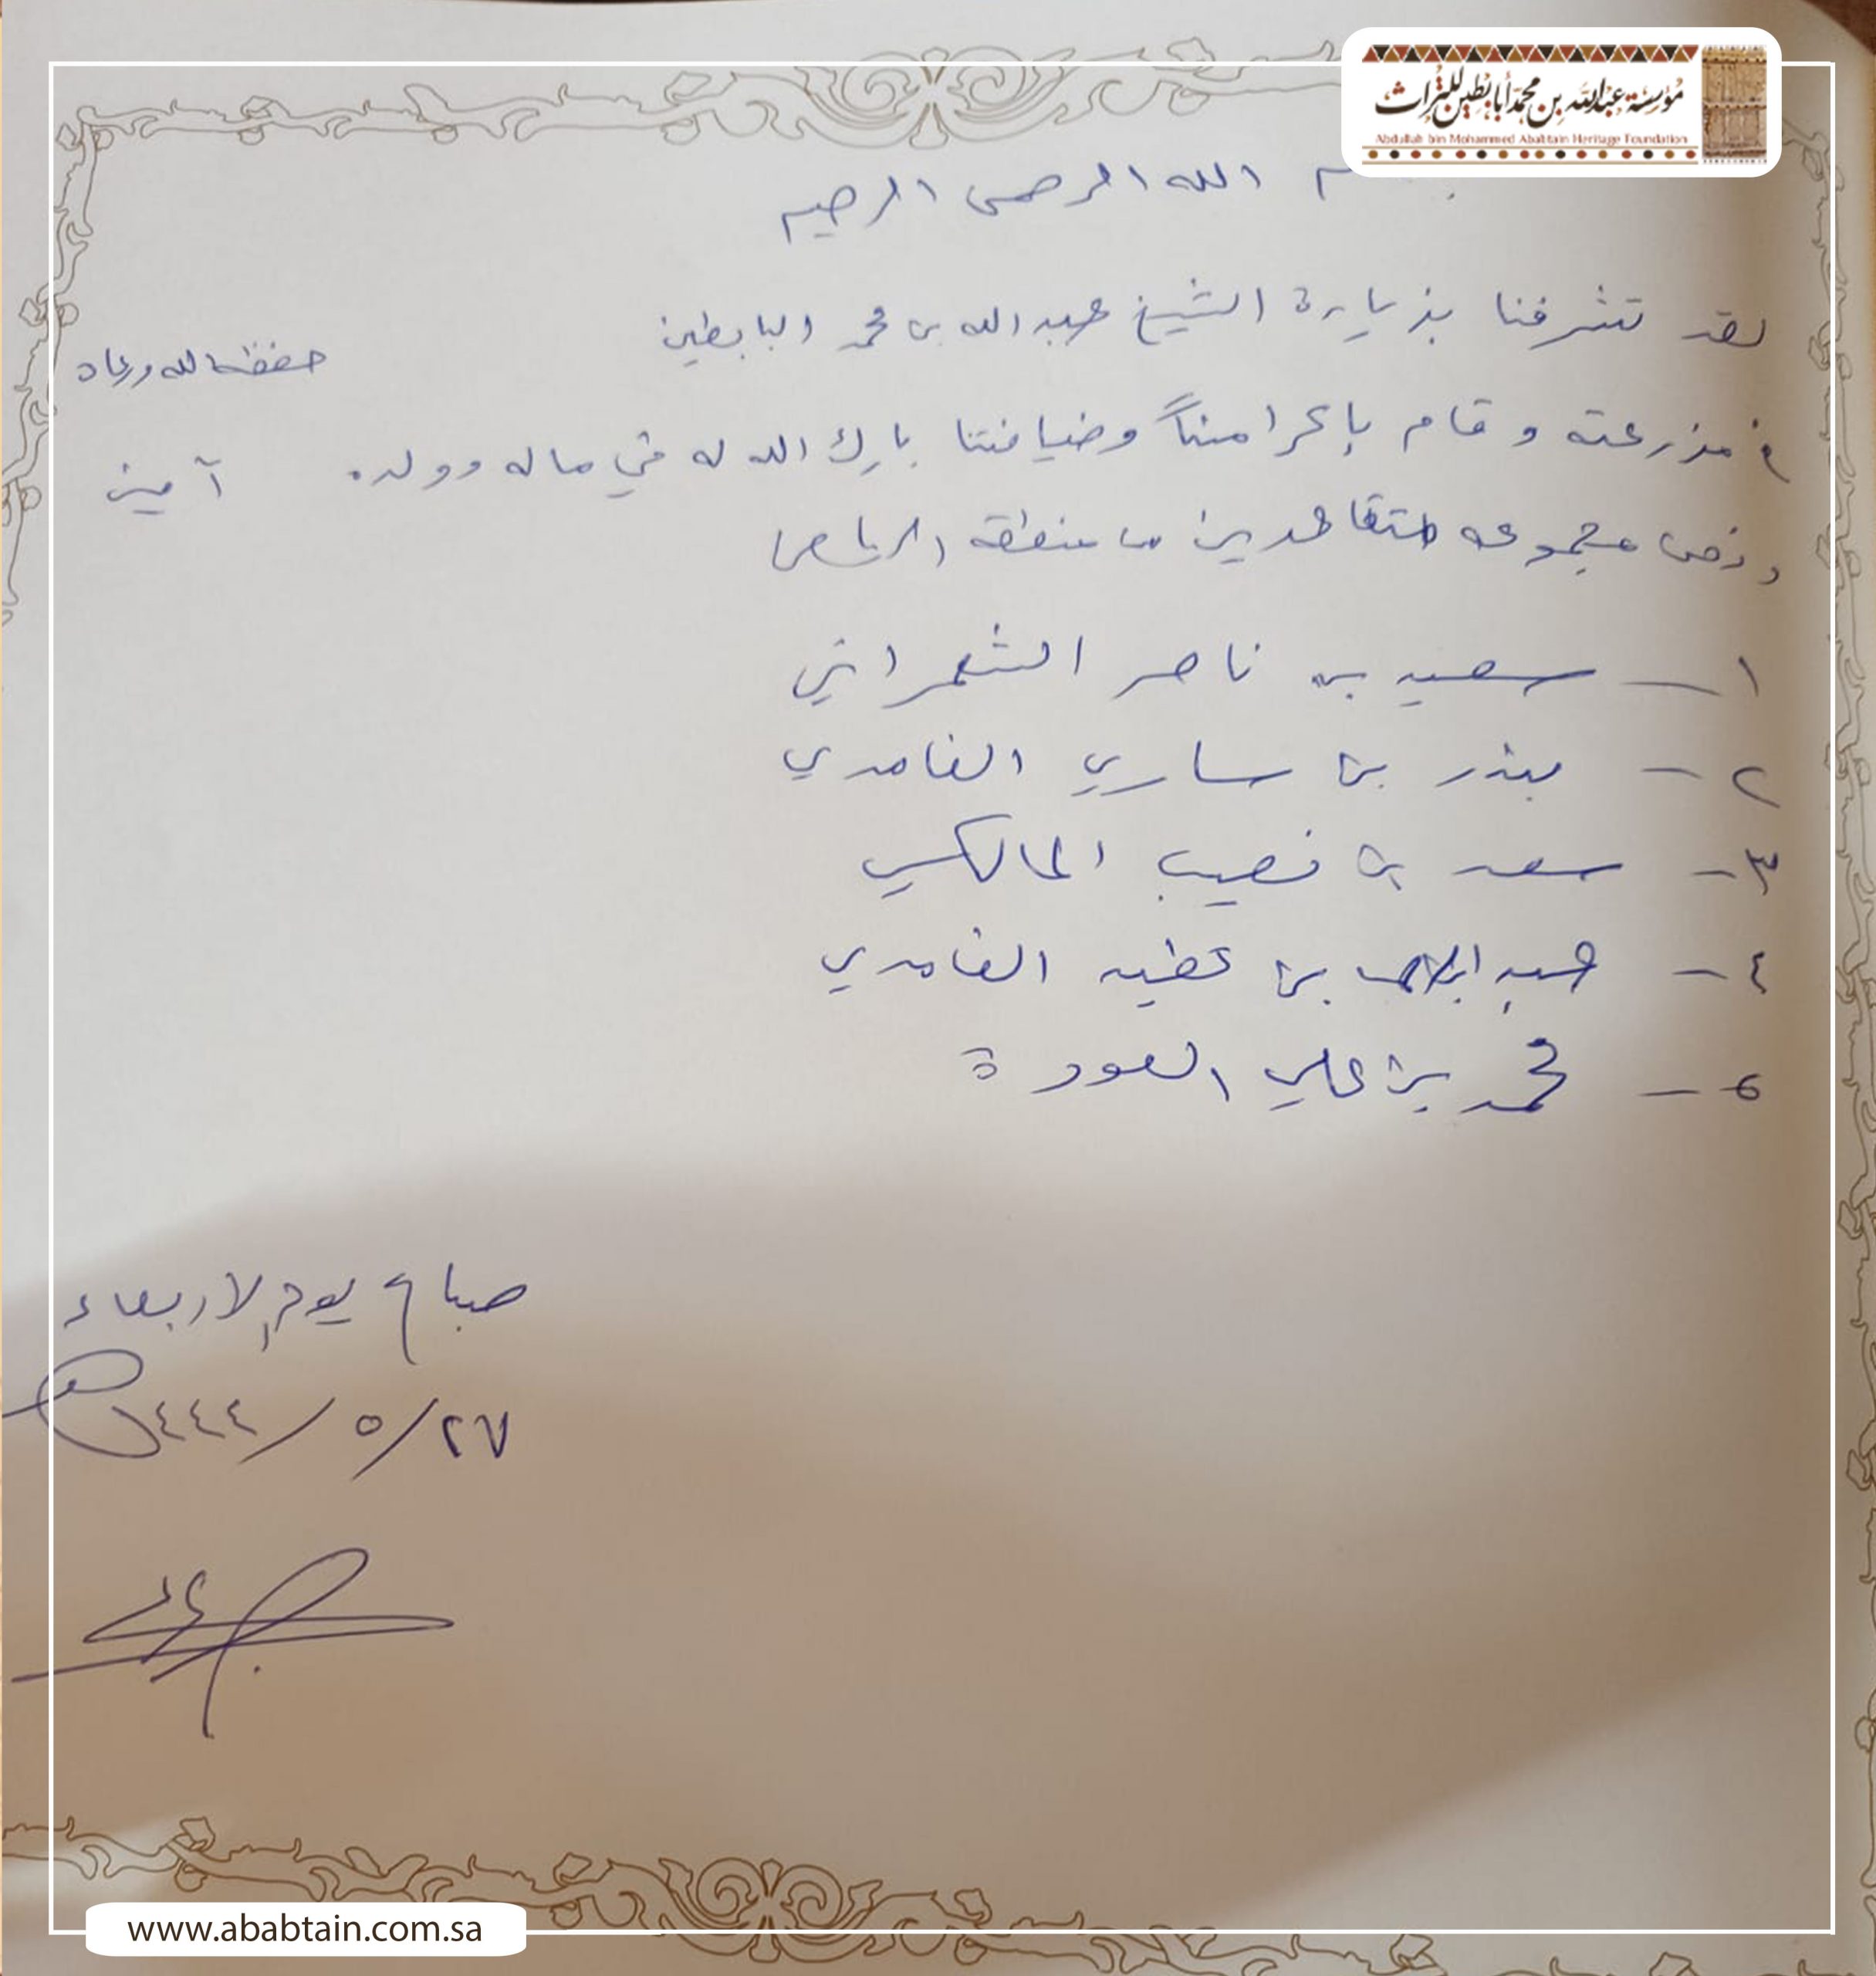 مؤسسة عبدالله بن محمد أبابطين للتراث
Abdullah bin Mohammed Ababtain Heritage Foundation
بسم الله الرحمن الرحيم
لقد تشرفنا بزيارة الشيخ عبد الله بن محمد البابطين حفظه الله ورعاه
في مزرعته وقام بإكرامنا وضيافتنا بارك الله له في ماله وولده آمين
ونحن مجموعه متقاعدين من منطقة الرياض
١- سعيد بن ناصر الشمراني
٢- بندر بن ساري الغامدي
٣- سعد بن نصيب المالكي
٤- عبد بن عطيه الغامدي
٥- محمد بن علي العودة
صباح يوم الاربعاء
٢٧/٥/١٤٤٤هـ
www.ababtain.com.sa